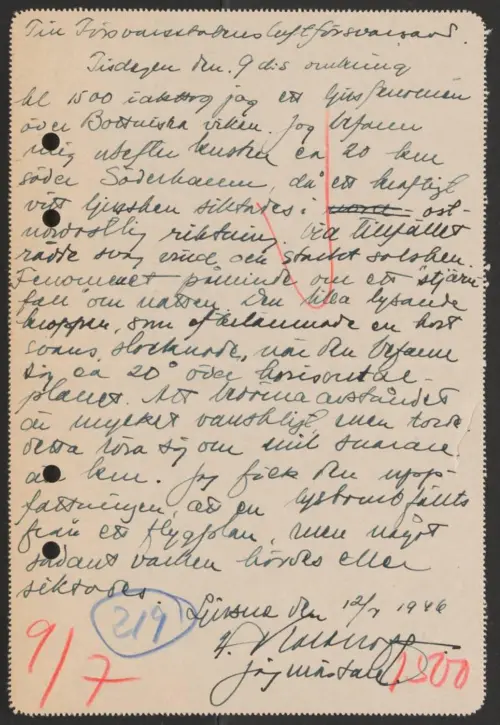 Till Försvarsstabens luftförsvarsavd.
Tisdagen den 9 d:s omkring
kl 1500 iakttog jag ett ljusfenomen
över Bottniska viken. Jag befann
mig utefter kusten ca 20 km
söder Söderhamn, då ett kraftigt
vitt ljussken siktades i nord ost-
nordostlig riktning. Vid tillfället
rådde svag vind och starkt solsken.
Fenomenet påminde om ett "stjärn
fall" om natten. Den lilla lysande
kroppen, som efterlämnade en kort
svans, slocknade, när den befann
sig ca 20° över horisontal-
planet. Att bedöma avståndet
är mycket vanskligt men torde
detta röra sig om mil snarare
än km. Jag fick den upp-
fattningen, att en lysbomb fällts
från ett flygplan, men något
sådant varken hördes eller
siktades.
Ljusne den 12/7 1946
jägmästare
219
9/7
1500